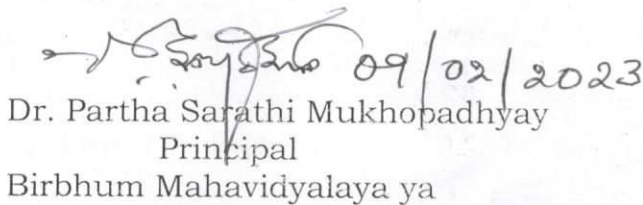 09/02/2023
Dr. Partha Sarathi Mukhopadhyay
Principal
Birbhum Mahavidyalaya ya